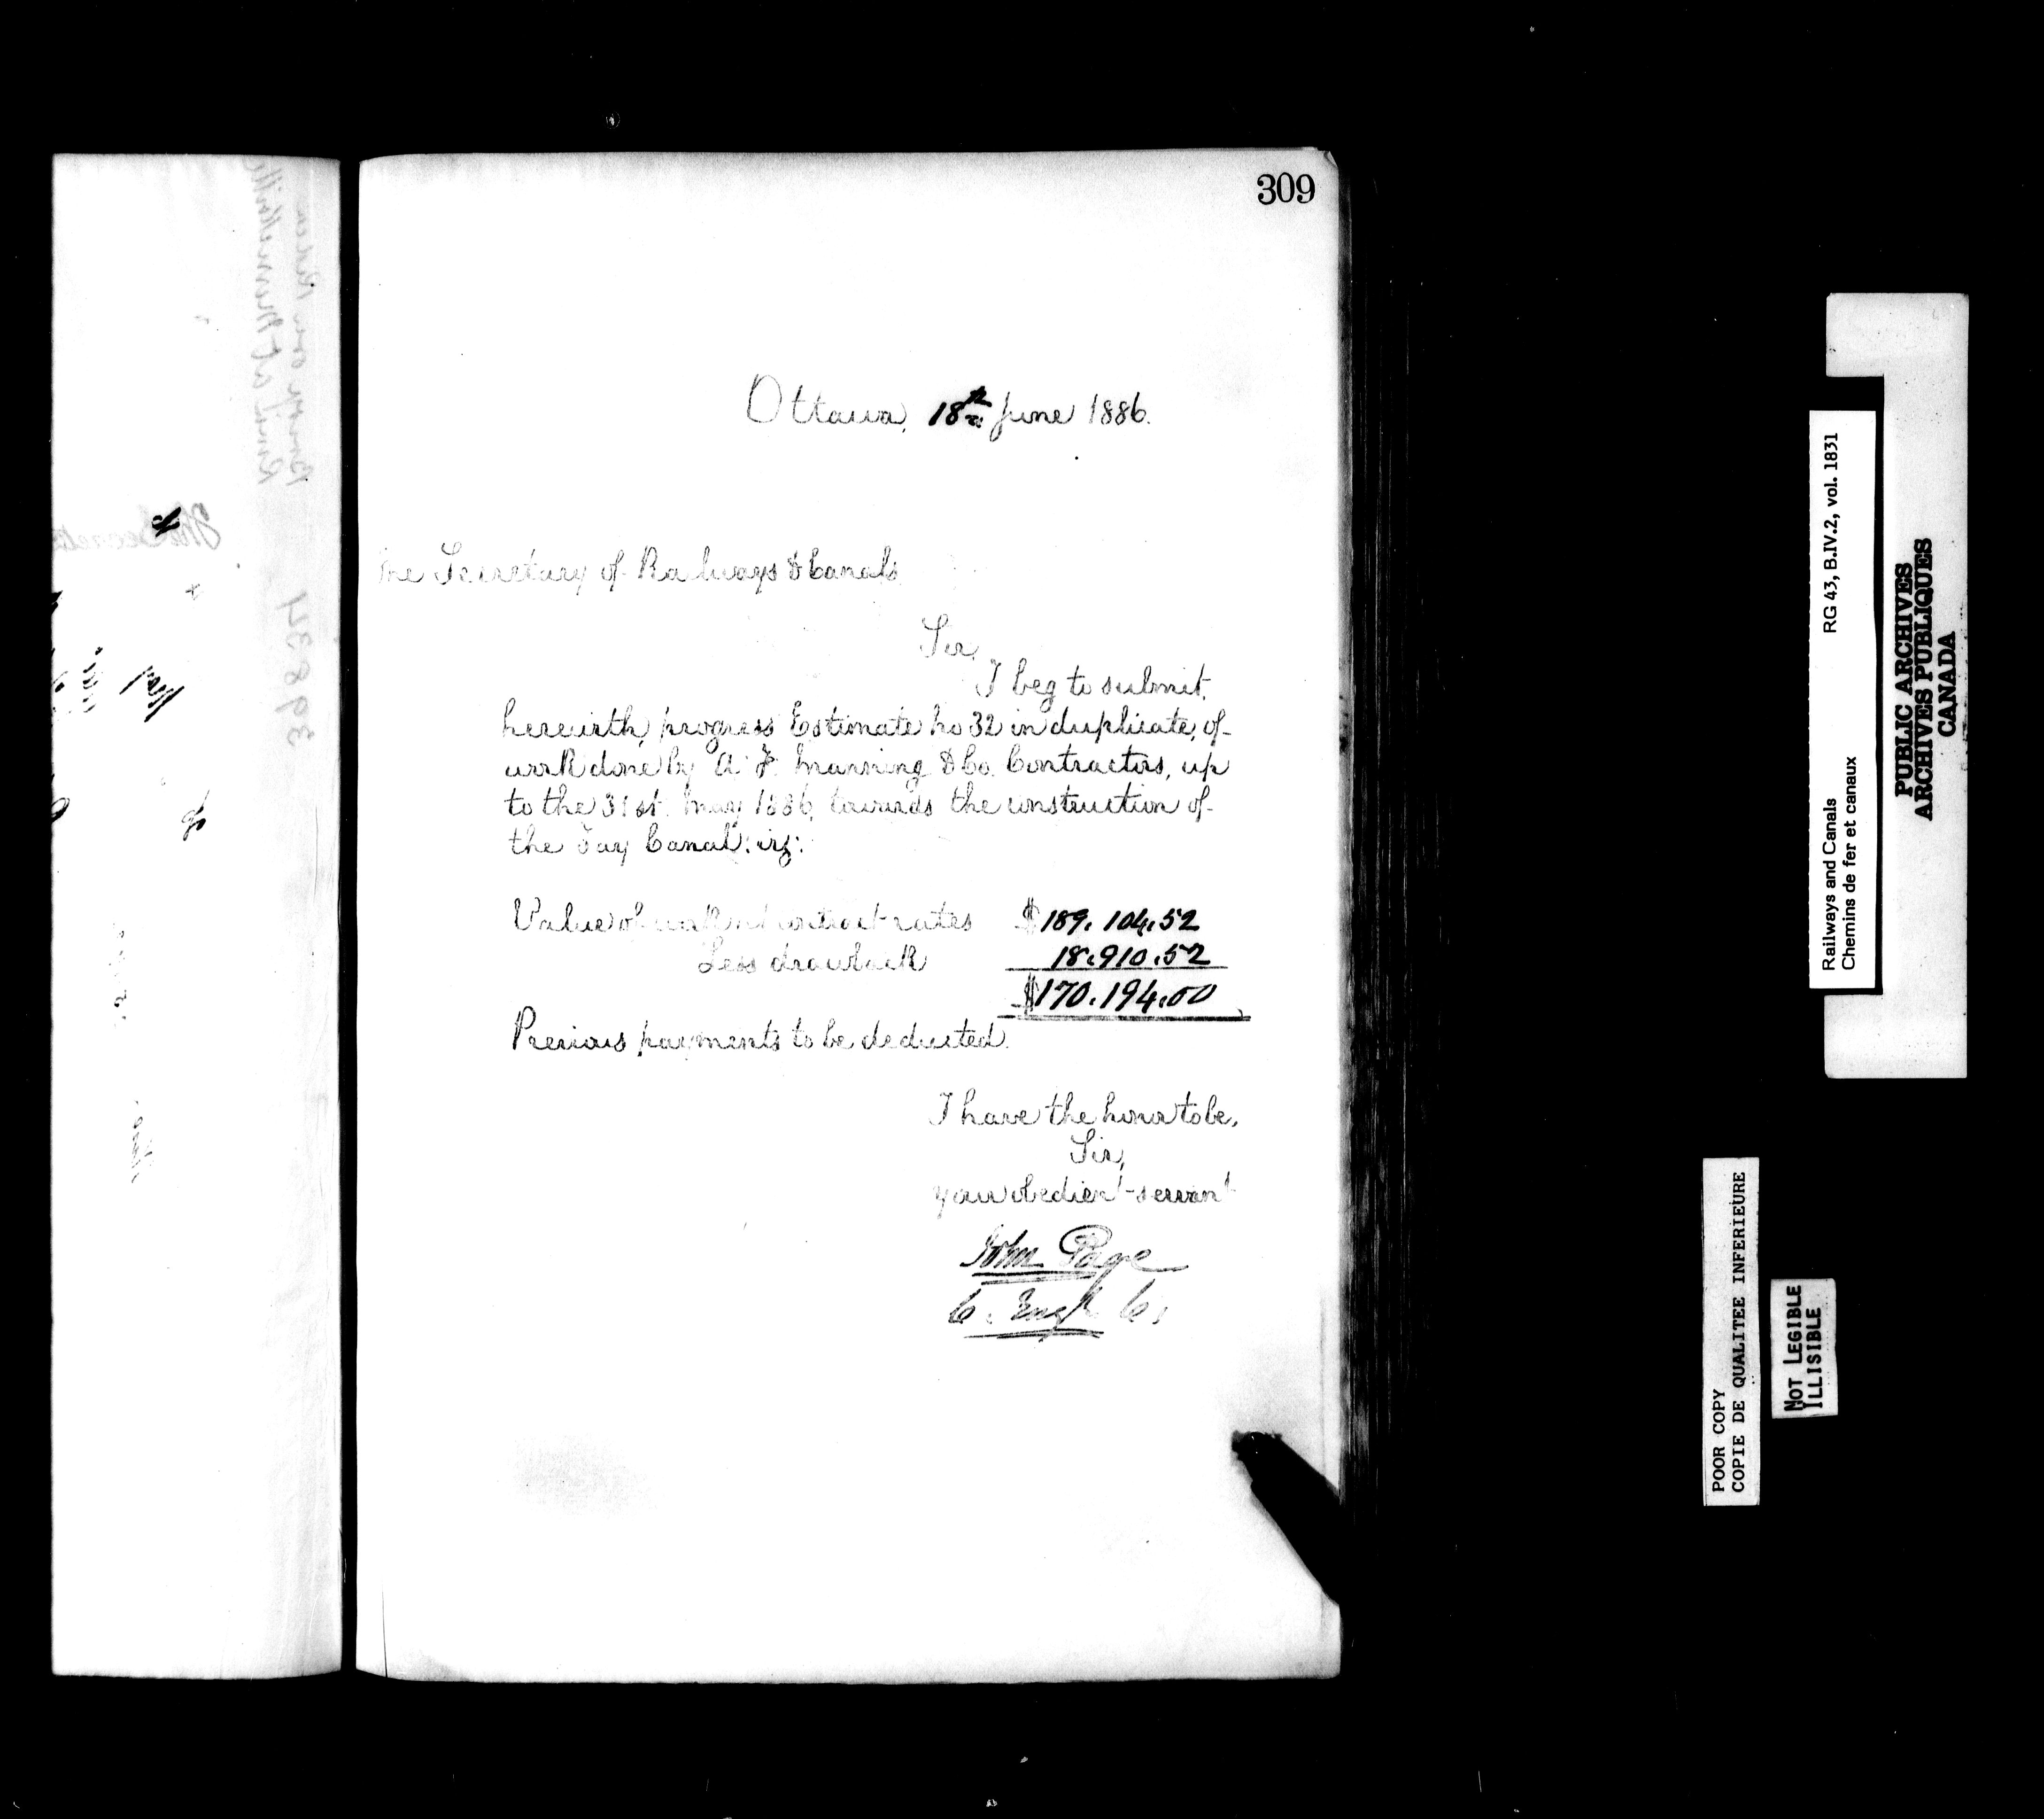 309
Ottawa, 18th June 1886.
The Secretary of Railways & Canals
Sir,
I beg to submit
herewith, progress Estimate No 32 in duplicate, of
work done by A. F. Manning & Co. Contractors, up
to the 31st. May 1886, towards the construction of
the Tay Canal: viz:
Value of work at contract rates $189.104.52
Less drawback 18.910.52
$170.194.00
Previous payments to be deducted.
I have the honor to be,
Sir,
your obedient servant
John Page
C. Engr C.
398834
Railways and Canals RG 43, B.IV.2, vol. 1831
Chemins de fer et canaux
PUBLIC ARCHIVES
ARCHIVES PUBLIQUES
CANADA
POOR COPY
COPIE DE QUALITEE INFERIEURE
NOT LEGIBLE
ILLISIBLE